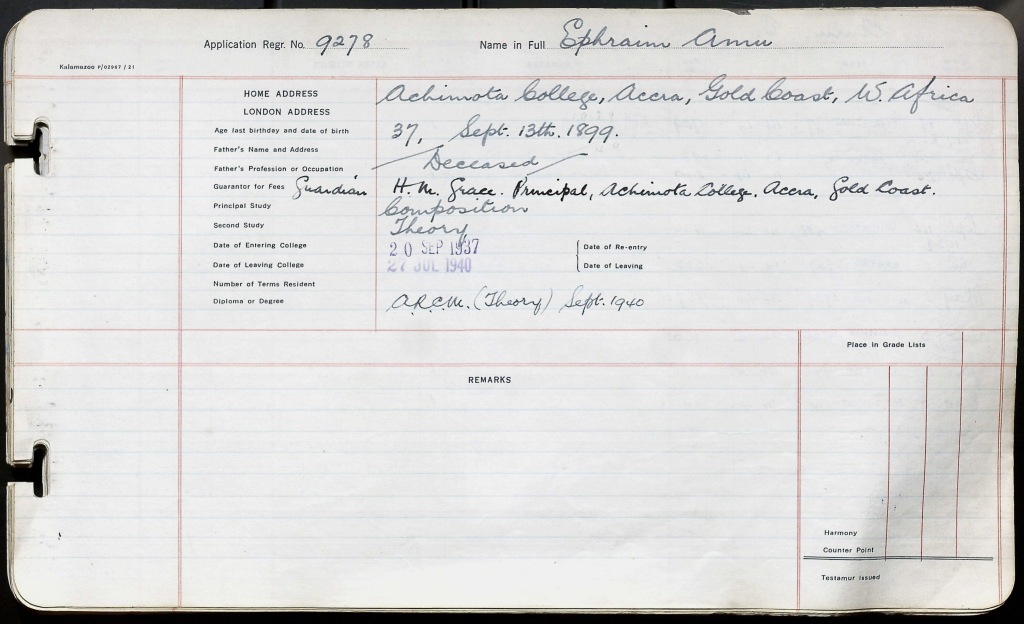 Application Regr. No. 9278 Name in Full Ephraim Amu
Kalamazoo P/02967/21
HOME ADDRESS Achimota College, Accra, Gold Coast, W. Africa
LONDON ADDRESS
Age last birthday and date of birth 37, Sept. 13th. 1899.
Father's Name and Address
Father's Profession or Occupation Deceased
Guarantor for Fees Guardian H. M. Grace. Principal, Achimota College. Accra, Gold Coast.
Principal Study Composition
Second Study Theory
Date of Entering College 20 SEP 1937 Date of Re-entry
Date of Leaving College 27 JUL 1940 Date of Leaving
Number of Terms Resident
Diploma or Degree A.R.C.M. (Theory) Sept. 1940
Place in Grade Lists
REMARKS
Harmony
Counter Point
Testamur Issued